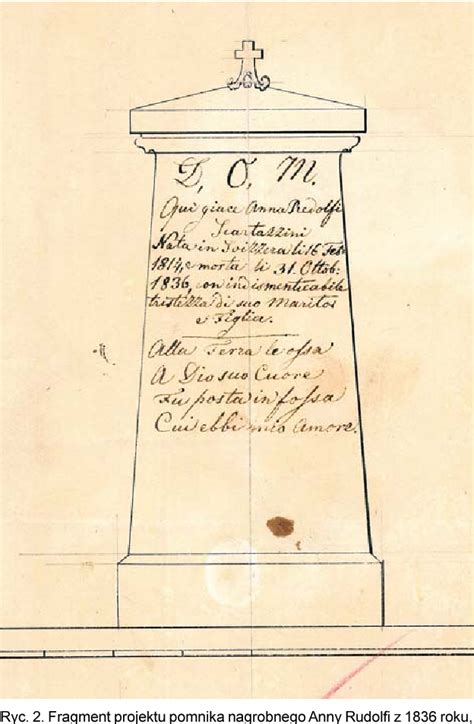 D, O, M.
Qui giace Anna Redolfi
Scartazzini
Nata in Svizzera li 16 Feb:
1814, e morta li 31. Ottob:
1836, con indismenticabile
tristezza di suo Maritos
e Figlia.
Alla Terra le ossa
A Dio suo Cuore
Fu posta in fossa
Cui ebbi mio Amore.
Ryc. 2. Fragment projektu pomnika nagrobnego Anny Rudolfi z 1836 roku.